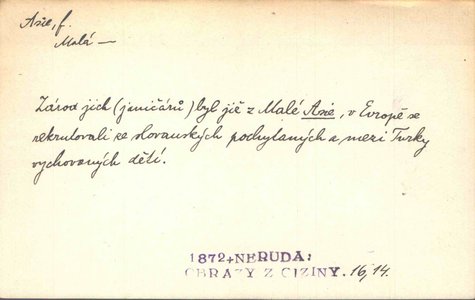 Asie, f.
Malá —
Zárod jich (janičárů) byl již z Malé Asie, v Evropě se
rekrutovali ze slovanských pochytaných a mezi Turky
vychovaných dětí.
1872+NERUDA:
OBRAZY Z CIZINY. 16, 14.